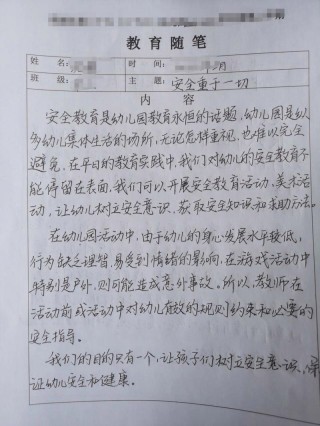 教育随笔
姓名:
时间: 月
班级:
主题: 安全重于一切
内 容
安全教育是幼儿园教育永恒的话题,幼儿园是以
多幼儿集体生活的场所,无论怎样重视,也难以完全
避免,在平日的教育实践中,我们对幼儿的安全教育不
能停留在表面,我们可以开展安全教育活动,美术活
动,让幼儿树立安全意识,获取安全知识和求助方法。
在幼儿园活动中,由于幼儿的身心发展水平较低,
行为缺乏理智,易受到情绪的影响,在游戏活动中
特别是户外,则可能造成意外事故。所以,教师在
活动前或活动中对幼儿有效的规则约束和必要的
安全指导。
我们的目的只有一个,让孩子们树立安全意识、保
证幼儿安全和健康。